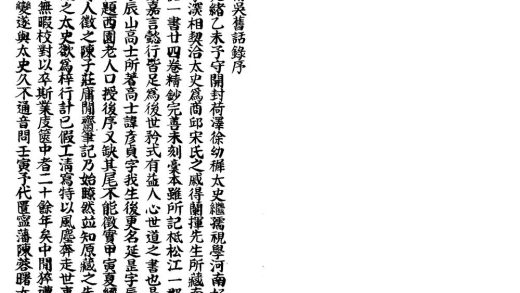 吳舊話錄序
緒乙未予守開封荷澤徐幼穉太史繼孺視學河南
深相契洽太史爲商邱宋氏之戚得蘭揮先生所藏
一書廿四卷精鈔完善未刻稾本雖所記柢松江一
嘉言懿行皆足爲後世矜式有益人心世道之書也
辰山高士所著高士諱彥貞字我生後更名延是字
題西園老人口授後序又缺其尾不能徵實甲寅夏
人徵之陳子莊庸閒齋筆記乃始瞭然並知原藏之
之太史歙爲梓行計已假工清寫特以風塵奔走世事
無暇校對以卒斯業庋篋中者二十餘年矣中閒猝
變遂與太史久不通音問壬寅予代匱寧藩陳蓉曙